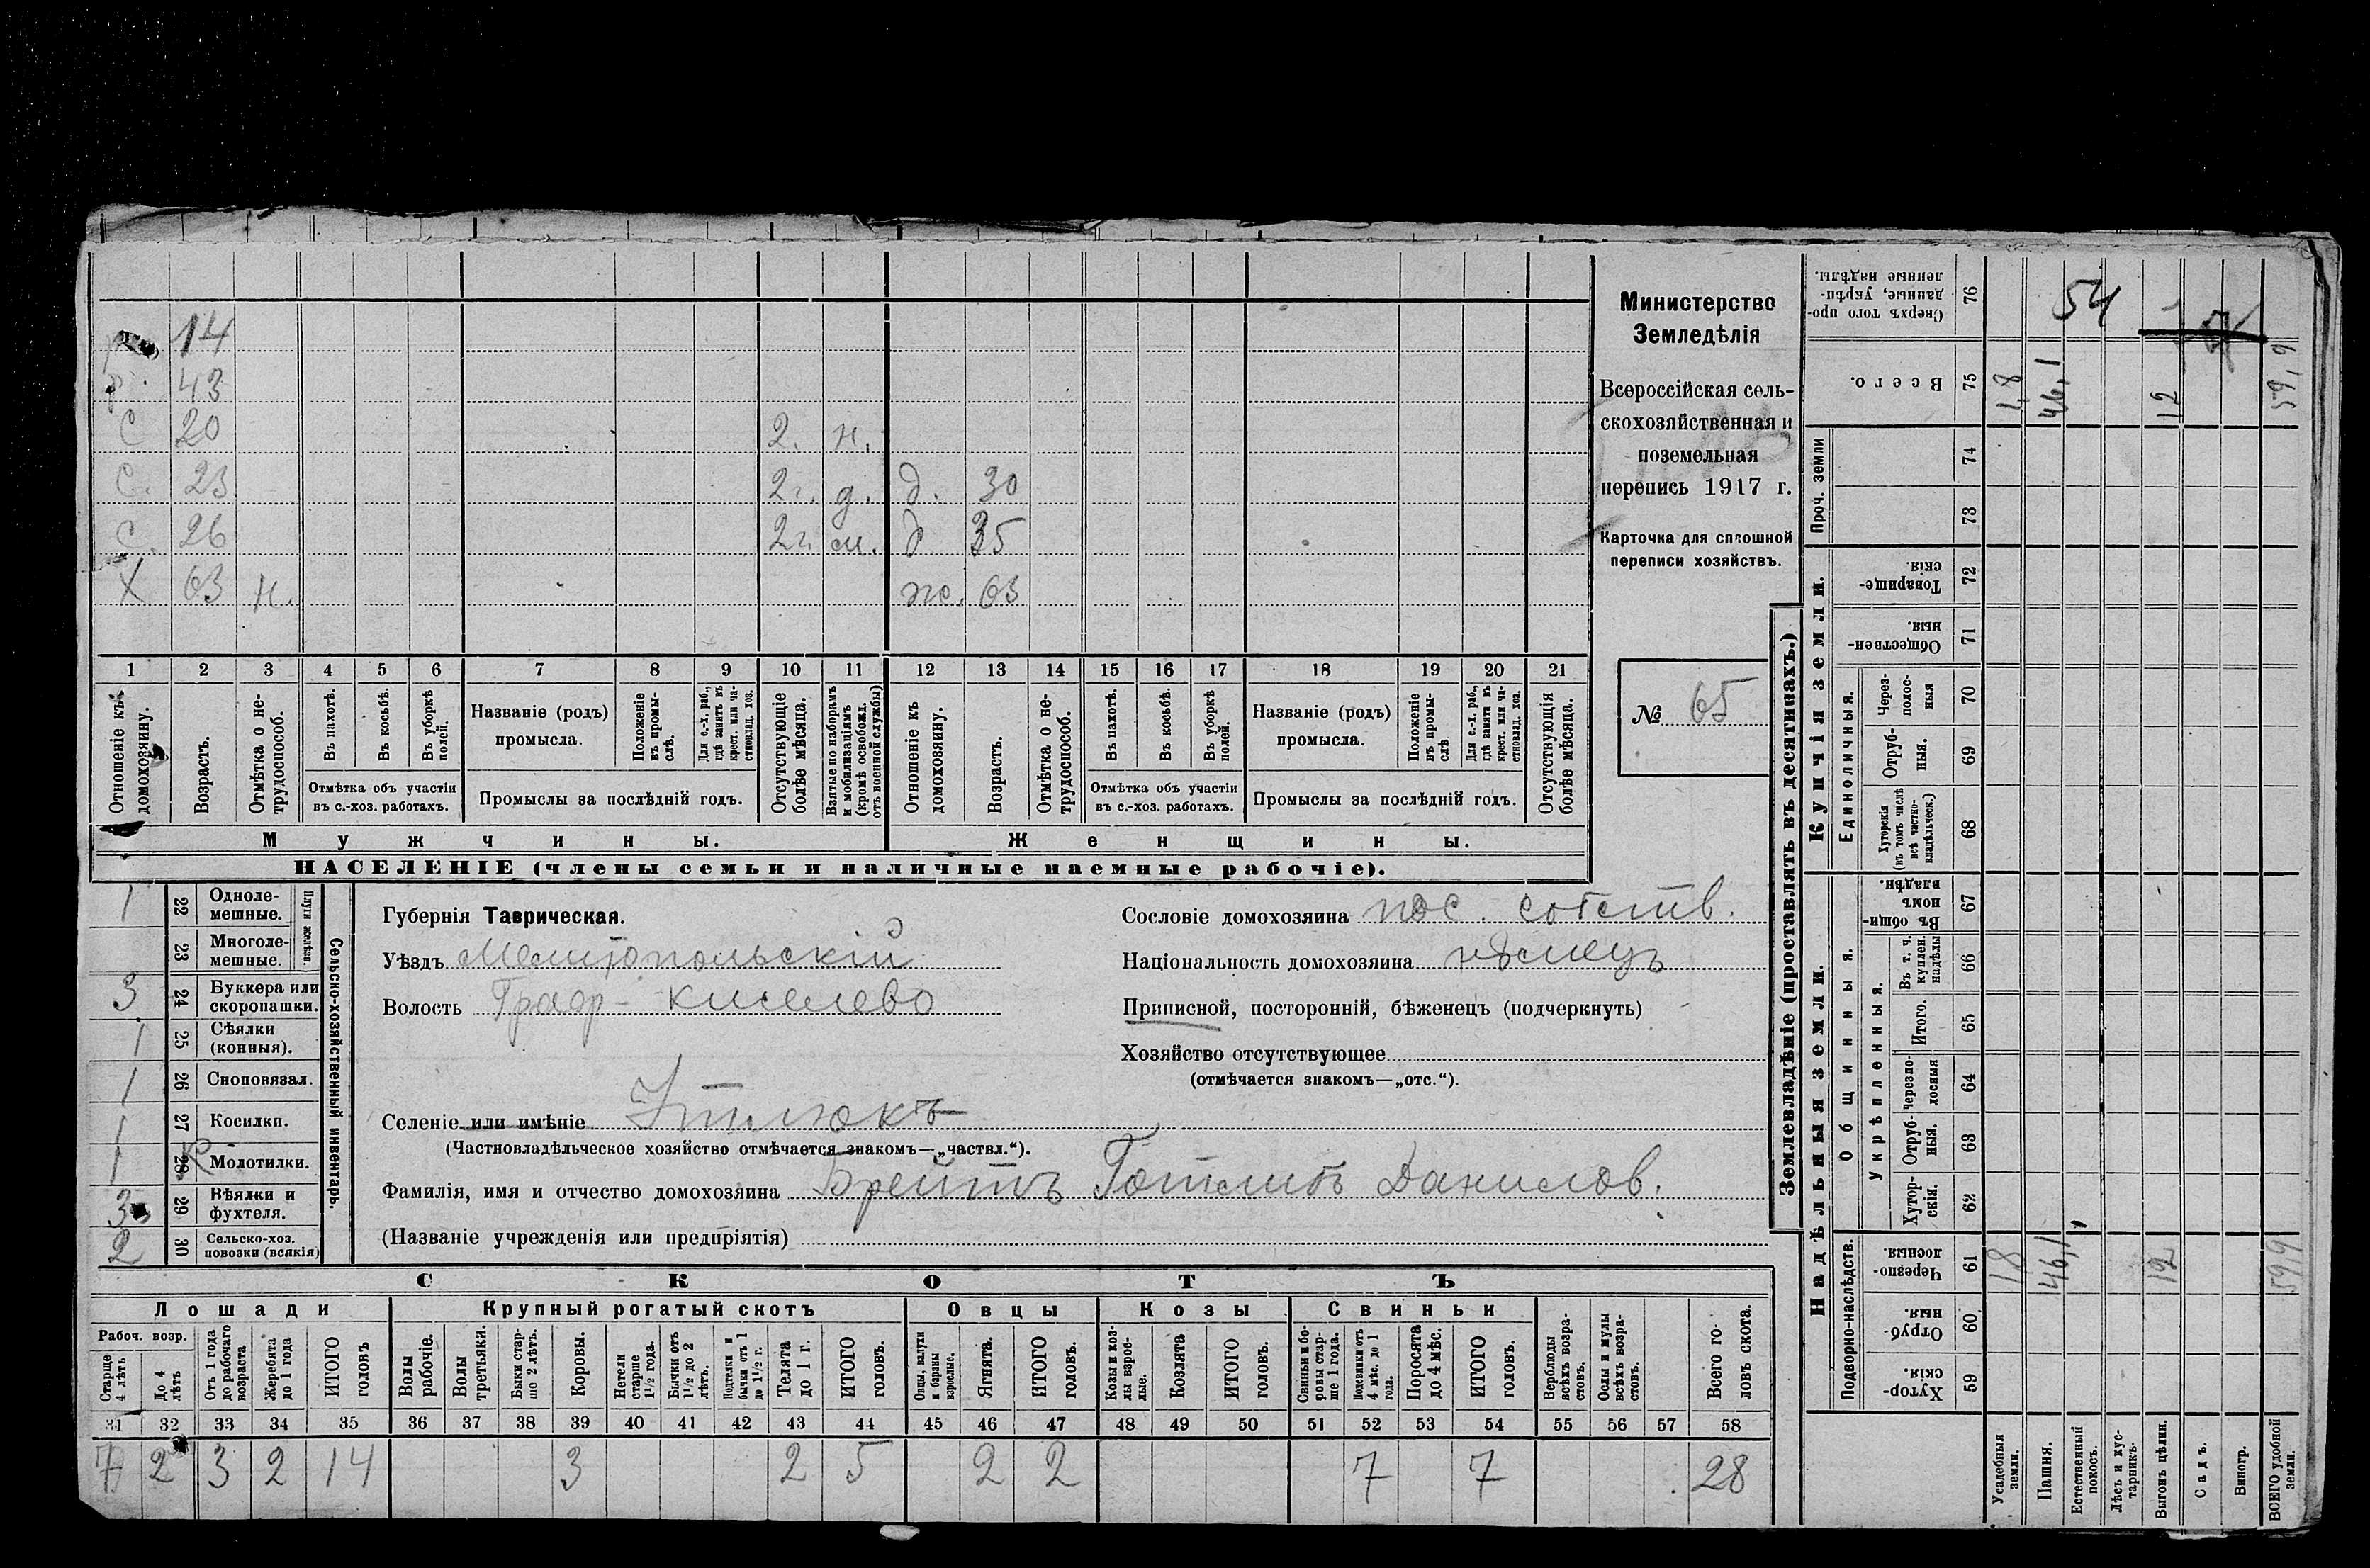 14
43
С 20 2. н.
С. 23 2г. д. д. 30
С. 26 2г. м. д 35
Х 63 н. ж. 63
1 2 3 4 5 6 7 8 9 10 11 12 13 14 15 16 17 18 19 20 21
Отношеніе къ домохозяину.
Возрастъ.
Отмѣтка о не-трудоспособ.
Въ пахотѣ.
Въ косьбѣ.
Въ уборкѣ полей.
Отмѣтка объ участіи
въ с.-хоз. работахъ.
Названіе (родъ)
промысла.
Положеніе въ промы-слѣ.
Для с.-х. раб., гдѣ занятъ въ крест. или ча-стновлад. хоз.
Промыслы за послѣдній годъ.
Отсутствующіе болѣе мѣсяца.
Взятые по наборамъ и мобилизаціямъ (кромѣ освобожд. отъ военной службы)
Отношеніе къ домохозяину.
Возрастъ.
Отмѣтка о не-трудоспособ.
Въ пахотѣ.
Въ косьбѣ.
Въ уборкѣ полей.
Отмѣтка объ участіи
въ с.-хоз. работахъ.
Названіе (родъ)
промысла.
Положеніе въ промы-слѣ
Для с.-х. раб., гдѣ занята въ крест. или ча-стновлад. хоз.
Промыслы за послѣдній годъ.
Отсутствующія болѣе мѣсяца.
Мужчины.
Женщины.
НАСЕЛЕНІЕ (члены семьи и наличные наемные рабочіе).
Министерство
Земледѣлія
Всероссійская сель-
скохозяйственная и
поземельная
перепись 1917 г.
Карточка для сплошной
переписи хозяйствъ.
№ 65
1 22 Одноле-мешные.
23 Многоле-мешные.
Плуги желѣзн.
3 24 Буккера или скоропашки.
1 25 Сѣялки (конныя).
1 26 Сноповязал.
1 27 Косилки.
1 28 Молотилки.
3 29 Вѣялки и фухтеля.
2 30 Сельско-хоз. повозки (всякія)
Сельско-хозяйственный инвентарь.
Губернія Таврическая.
Уѣздъ Мелитопольскій
Волость Граф-Киселево
Селеніе или имѣніе Утлюкъ
(Частновладѣльческое хозяйство отмѣчается знакомъ—„частвл.“).
Фамилія, имя и отчество домохозяина Брейтъ Готлибъ Данилов.
(Названіе учрежденія или предпріятія)
Сословіе домохозяина пос. собств.
Національность домохозяина нѣмецъ
Приписной, посторонній, бѣженецъ (подчеркнуть)
Хозяйство отсутствующее
(отмѣчается знакомъ—„отс.“).
СКОТЪ
Лошади
Крупный рогатый скотъ
Овцы
Козы
Свиньи
Рабоч. возр.
Старше 4 лѣтъ
До 4 лѣтъ
Отъ 1 года до рабочаго возраста
Жеребята до 1 года
ИТОГО головъ
Волы рабочіе.
Волы третьяки.
Быки стар-ше 2 лѣтъ.
Коровы.
Нетели старше 1½ года.
Бычки отъ 1½ до 2 лѣтъ.
Подтелки и бычки отъ 1 до 1½ г.
Телята до 1 г.
ИТОГО головъ.
Овцы, валухи и бараны взрослые.
Ягнята.
ИТОГО головъ.
Козы и коз-лы взрос-лые.
Козлята
ИТОГО головъ.
Свиньи и бо-ровы стар-ше 1 года.
Подсвинки отъ 4 мѣс. до 1 года.
Поросята до 4 мѣс.
ИТОГО головъ.
Верблюды всѣхъ возра-стовъ.
Ослы и мулы всѣхъ возра-стовъ.
Всего го-ловъ скота.
31 32 33 34 35 36 37 38 39 40 41 42 43 44 45 46 47 48 49 50 51 52 53 54 55 56 57 58
7 2 3 2 14 3 2 5 2 2 7 7 28
Землевладѣніе (проставлять въ десятинахъ.)
Сверхъ того про-данные, укрѣп-ленные надѣлы. 76 54
Всего. 75 1,8 46,1 12 59,9
Проч. земли
74
73
Купчія земли.
Товарище-скія. 72
Обществен-ныя. 71
Единоличныя.
Через-полос-ныя 70
Отруб-ныя. 69
Хуторскія (въ томъ числѣ всѣ частно-владѣльческ.) 68
Надѣльныя земли.
Общинныя.
Въ общи-номъ владѣн. 67
Укрѣпленныя.
Въ т. ч. куплен. надѣлы 66
Итого. 65
Черезпо-лосныя 64
Отруб-ныя. 63
Хутор-скія. 62
Подворно-наслѣдств.
Черезпо-лосныя. 61 18 46,1 12 599
Отруб-ныя. 60
Хутор-скія. 59
Усадебныя земли.
Пашня.
Естественный покосъ.
Лѣсъ и кус-тарникъ.
Выгонъ цѣлин.
Садъ.
Виногр.
ВСЕГО удобной земли.